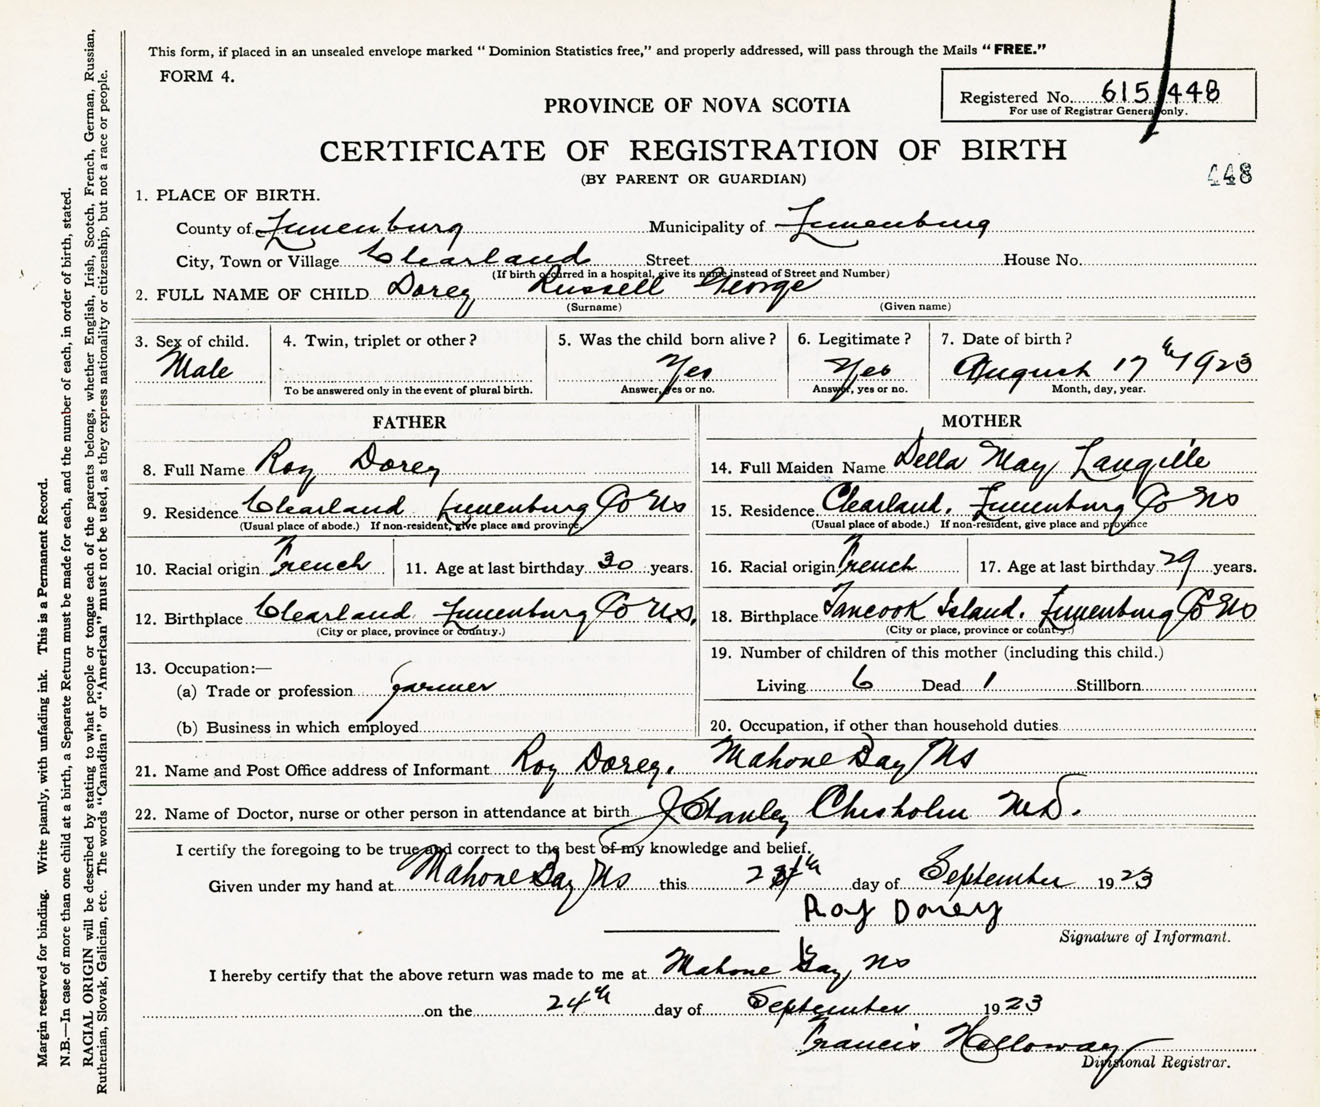 This form, if placed in an unsealed envelope marked "Dominion Statistics free," and properly addressed, will pass through the Mails "FREE."
FORM 4.
Registered No. 615/448
For use of Registrar General only.
PROVINCE OF NOVA SCOTIA
CERTIFICATE OF REGISTRATION OF BIRTH
(BY PARENT OR GUARDIAN)
448
1. PLACE OF BIRTH.
County of Lunenburg Municipality of Lunenburg
City, Town or Village Clearland Street House No.
(If birth occurred in a hospital, give its name instead of Street and Number)
2. FULL NAME OF CHILD Dorey Russell George
(Surname) (Given name)
3. Sex of child. 4. Twin, triplet or other? 5. Was the child born alive? 6. Legitimate? 7. Date of birth?
Male Yes Yes August 17th 1923
To be answered only in the event of plural birth. Answer, yes or no. Answer, yes or no. Month, day, year.
FATHER MOTHER
8. Full Name Roy Dorey 14. Full Maiden Name Della May Langille
9. Residence Clearland Lunenburg Co NS 15. Residence Clearland, Lunenburg Co NS
(Usual place of abode.) If non-resident, give place and province. (Usual place of abode.) If non-resident, give place and province
10. Racial origin French 11. Age at last birthday 30 years. 16. Racial origin French 17. Age at last birthday 29 years.
12. Birthplace Clearland Lunenburg Co N.S. 18. Birthplace Tancook Island. Lunenburg Co NS
(City or place, province or country.) (City or place, province or country.)
13. Occupation:— 19. Number of children of this mother (including this child.)
(a) Trade or profession farmer Living 6 Dead 1 Stillborn
(b) Business in which employed 20. Occupation, if other than household duties
21. Name and Post Office address of Informant Roy Dorey. Mahone Bay NS
22. Name of Doctor, nurse or other person in attendance at birth J Stanley Chisholm M.D.
I certify the foregoing to be true and correct to the best of my knowledge and belief.
Given under my hand at Mahone Bay NS this day of September 1923
Roy Dorey
Signature of Informant.
I hereby certify that the above return was made to me at Mahone Bay, NS
on the 24th day of September 1923
Francis Holloway
Divisional Registrar.
Margin reserved for binding. Write planly, with unfading ink. This is a Permanent Record.
N.B.—In case of more than one child at a birth, a Separate Return must be made for each, and the number of each, in order of birth, stated.
RACIAL ORIGIN will be described by stating to what people or tongue each of the parents belongs, whether English, Irish, Scotch, French, German, Russian,
Ruthenian, Slovak, Galician, etc. The words "Canadian" or "American" must not be used, as they express nationality or citizenship, but not a race or people.